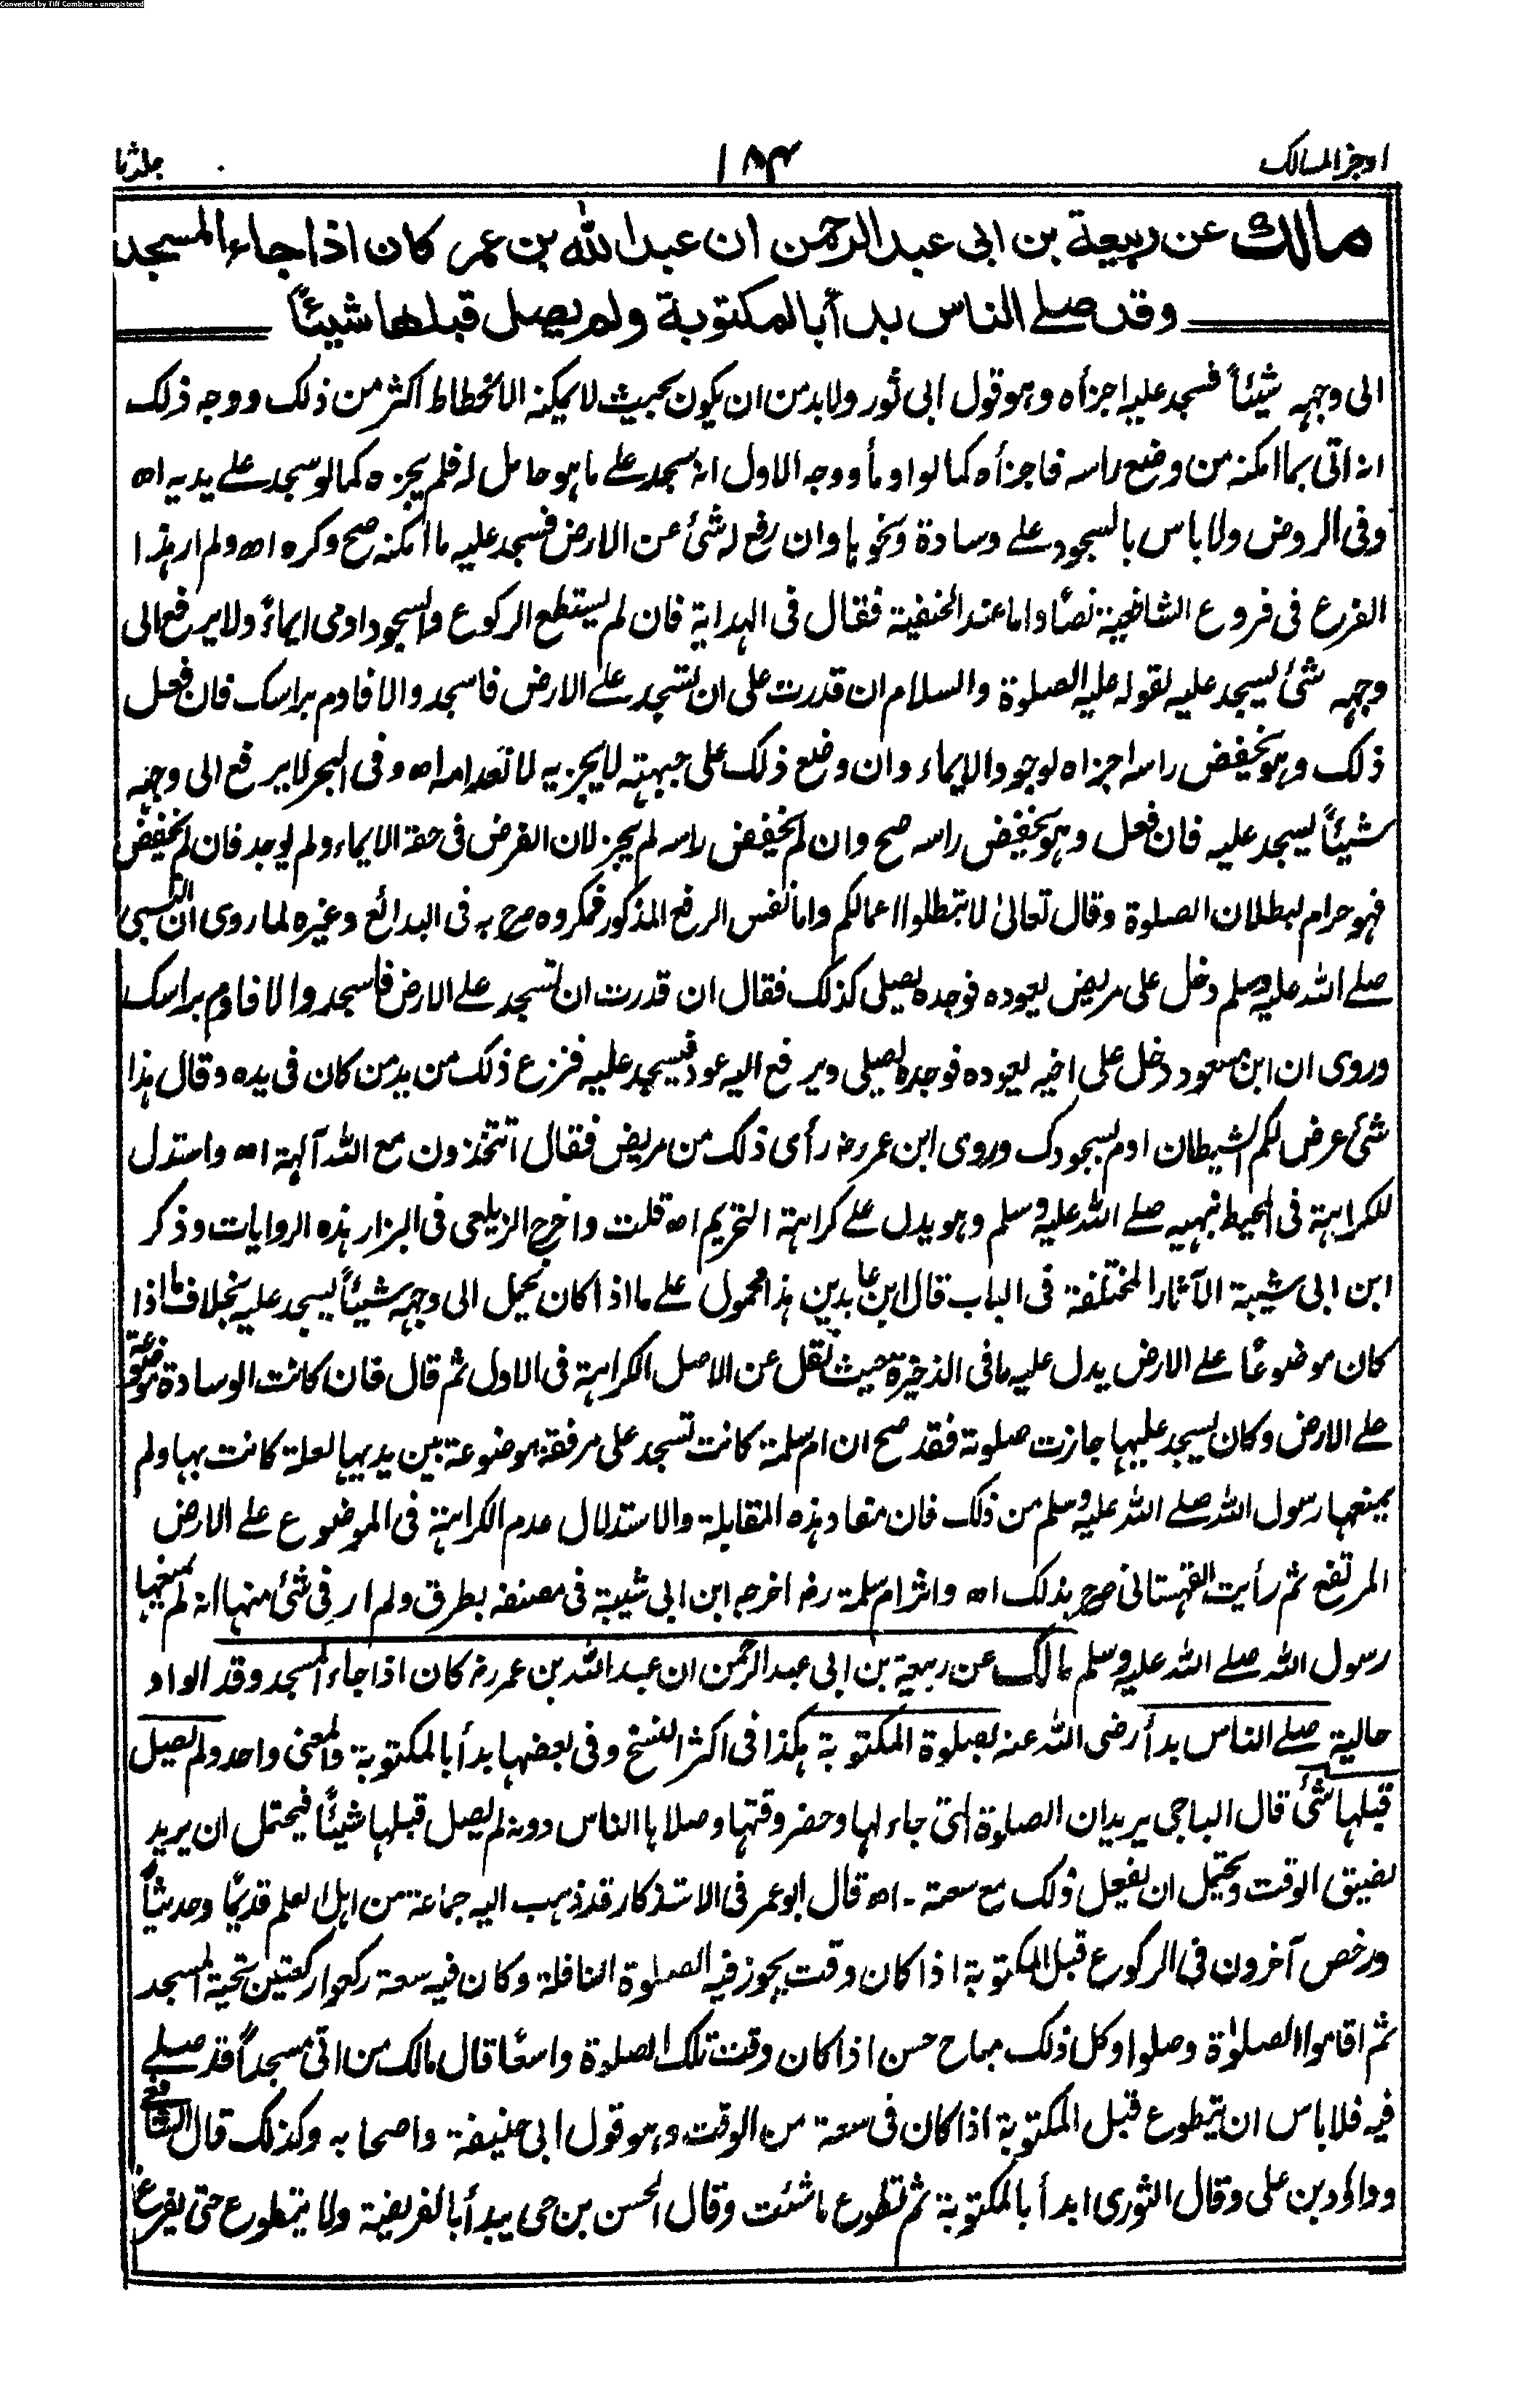 Converted by Tiff Combine - unregistered
اوجز المسالك ١٨٤ جلد ثا
مالك عن ربيعة بن ابى عبد الرحمن ان عبد الله بن عمر كان اذا جاء المسجد
وقد صلے الناس بدأ بالمكتوبة ولم يصل قبلها شيئًا
الى وجهہ شيئًا فسجد عليہ اجزأه وہو قول ابى ثور ولا بد من ان يكون بحيث لا يمكنہ الانحطاط اكثر من ذلك ووجہ ذلك
انہ اتى بما امكنہ من وضع راسہ فاجزأه كما لو اومأ ووجہ الاول انہ سجد علے ما ہو حامل لہ فلم يجزه كما لو سجد علے يديہ اھ
وفى الروض ولا باس بالسجود علے وسادة ونحوہا وان رفع لہ شئ عن الارض فسجد عليہ ما امكنہ صح وكره اھ ولم ار ہذا
الفرع فى فروع الشافعية نصًا واما عند الحنفية فقال فى الہداية فان لم يستطع الركوع والسجود اومى ايماءً ولا يرفع الى
وجہہ شئ يسجد عليہ لقولہ عليہ الصلوة والسلام ان قدرت على ان تسجد علے الارض فاسجد والا فاوم براسك فان فعل
ذلك وہو يخفض راسہ اجزاه لوجود الايماء وان وضع ذلك على جبہتہ لا يجزيہ لانعدامہ اھ وفى البحر لا يرفع الى وجہہ
شيئًا يسجد عليہ فان فعل وہو يخفض راسہ صح وان لم يخفض راسہ لم يجز لان الفرض فى حقہ الايماء ولم يوجد فان لم يخفض
فہو حرام لبطلان الصلوة وقال تعالىٰ لا تبطلوا اعمالكم واما نفس الرفع المذكور فمكروه صرح بہ فى البدائع وغيره لما روى ان النبى
صلے اللہ عليہ وسلم دخل على مريض يعوده فوجده يصلى كذلك فقال ان قدرت ان تسجد علے الارض فاسجد والا فاوم براسك
وروى ان ابن مسعود دخل على اخيہ يعوده فوجده يصلى ويرفع اليہ عود فيسجد عليہ فنزع ذلك من يد من كان فى يده وقال ہذا
شئ عرض لكم الشيطان اوم بسجودك وروى ابن عمر رضہ رأى ذلك من مريض فقال أتتخذون مع اللہ آلہة اھ واستدل
للكراہة فى المحيط بنہيہ صلے اللہ عليہ وسلم وہو يدل علے كراہة التحريم اھ قلت واخرج الزيلعى فى البزار ہذه الروايات وذكر
ابن ابى شيبة الآثار المختلفة فى الباب قال ابن عابدين ہذا محمول علے ما اذا كان يحمل الى وجہہ شيئًا يسجد عليہ بخلاف ما اذا
كان موضوعًا علے الارض يدل عليہ ما فى الذخيرة حيث نقل عن الاصل الكراہة فى الاول ثم قال فان كانت الوسادة موضوعة
علے الارض وكان يسجد عليہا جازت صلوتہ فقد صح ان ام سلمة كانت تسجد على مرفقة موضوعة بين يديہا لعلة كانت بہا ولم
يمنعہا رسول اللہ صلے اللہ عليہ وسلم من ذلك فان مفاد ہذه المقابلة والاستدلال عدم الكراہة فى الموضوع علے الارض
المرتفع ثم رأيت القہستانى صرح بذلك اھ واثر ام سلمة رضہ اخرجہ ابن ابى شيبة فى مصنفہ بطرق ولم ار فى شئ منہا انہ لم يمنعہا
رسول اللہ صلے اللہ عليہ وسلم مالك عن ربيعة بن ابى عبد الرحمن ان عبد اللہ بن عمر رضہ كان اذا جاء المسجد وقد الواو
حالية صلے الناس بدأ رضى اللہ عنہ بصلوة المكتوبة ہكذا فى اكثر النسخ وفى بعضہا بدأ بالمكتوبة والمعنى واحد ولم يصل
قبلہا شئ قال الباجى يريد ان الصلوة التى جاء لہا وحضر وقتہا وصلاہا الناس دونہ لم يصل قبلہا شيئًا فيحتمل ان يريد
لضيق الوقت ويحتمل ان يفعل ذلك مع سعتہ - اھ قال ابو عمر فى الاستذكار قد ذہب اليہ جماعة من اہل العلم قديمًا وحديثًا
ورخص آخرون فى الركوع قبل المكتوبة اذا كان وقت يجوز فيہ الصلوة النافلة وكان فيہ سعة ركعوا ركعتين تحية المسجد
ثم اقاموا الصلوٰة وصلوا وكل ذلك مباح حسن اذا كان وقت تلك الصلوة واسعًا قال مالك من اتى مسجدًا قد صلے
فيہ فلا باس ان يتطوع قبل المكتوبة اذا كان فى سعة من الوقت وہو قول ابى حنيفة واصحابہ وكذلك قال الشافعى
وداؤد بن على وقال الثورى ابدأ بالمكتوبة ثم تطوع ما شئت وقال الحسن بن حى يبدأ بالفريضة ولا يتطوع حتى يفرغ